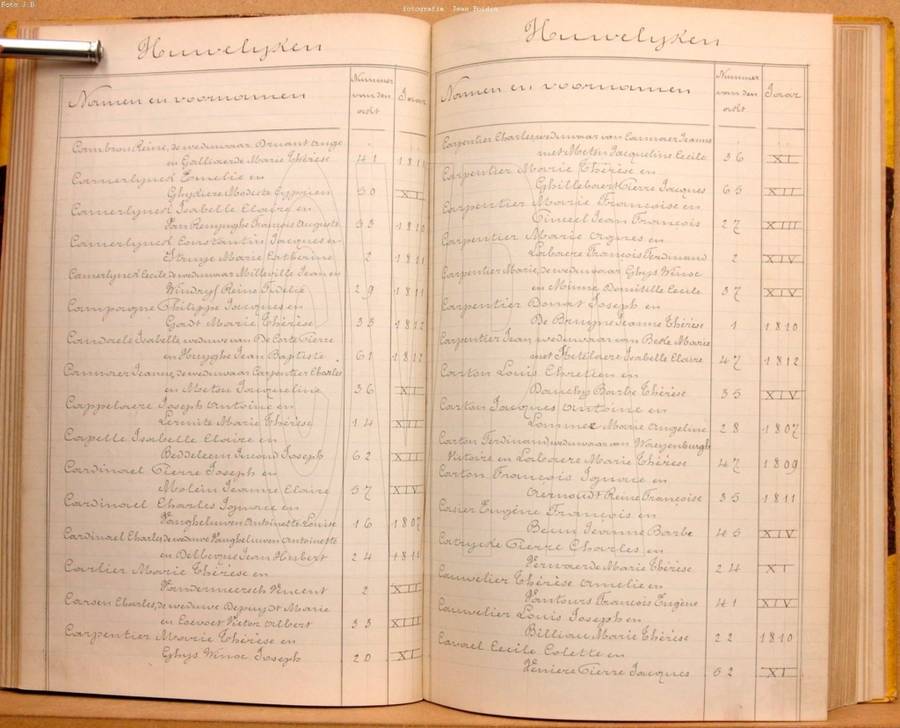 Foto J.D
fotografie Jean
Huwelijken
Namen en voornamen
Nummer van den acte
Jaar
Cambron Reine, de weduwaar Druant Ange
en Galliaerde Marie Thérèse 41 1811
Camerlynck Emelie en
Ghydiere Modeste Cyprien 50 XI
Camerlynck Isabelle Claire en
François Auguste 53 1810
Camerlynck Constantin Jacques en
Struye Marie Catherine 2 1811
Camerlynck Cecile de weduwaar Milleville Jean en
Reine Fidélie 29 1811
Campagne Philippe Jacques en
Gardt Marie Thérèse 33 1812
Isabelle weduwe van De Corte Pierre
en Huyghe Jean Baptiste 61 1812
Cannaer Jeanne, de weduwaar Carpentier Charles
en Metsu Jacqueline 36 XI
Cappelaere Joseph Antoine en
Lermite Marie Thérèse 14 XIII
Capelle Isabelle Claire en
Joseph 62 XII
Cardinael Pierre Joseph en
Molein Jeanne Claire 57 XIV
Cardinael Charles Ignace en
Vangheluwen Antoinette Louise 16 1807
Cardinael Charles de weduwe Vangheluwen Antoinette
en Dellevoye Jean Hubert 24 1811
Carlier Marie Thérèse en
Vandermeersch Vincent 2 XII
Carsen Charles, de weduwe Depuydt Marie
en Loevoet Victor Albert 33 XIII
Carpentier Marie Thérèse en
Ghys Winoc Joseph 20 XI
Huwelijken
Namen en voornamen
Nummer van den acte
Jaar
Carpentier Charles, weduwaar van Cannaer Jeanne
met Metsu Jacqueline Cecile 36 XI
Carpentier Marie Thérèse en
Ghillebaert Pierre Jacques 65 XII
Carpentier Marie Françoise en
Jean François 27 XIII
Carpentier Marie Agnes en
Labaere François Ferdinand 2 XIV
Carpentier Marie, de weduwaar Ghys Winoc
en Minne Domitille Cecile 37 XIV
Carpentier Donat Joseph en
De Bruyne Jeanne Thérèse 1 1810
Carpentier Jean weduwaar van Besle Marie
met Ketelaere Isabelle Claire 47 1812
Carton Louis Chretien en
Dauchy Barbe Thérèse 35 XIV
Carton Jacques Antoine en
Lommez Marie Angeline 28 1807
Carton Ferdinand, weduwaar van Waeyenburgh
Victoire en Labaere Marie Thérèse 47 1809
Carton François Ignace en
Aernoudt Reine Françoise 35 1811
Casier Eugène François en
Jeanne Barbe 45 XIV
Catrycke Pierre Charles en
Verwaerde Marie Thérèse 24 XI
Cauwelier Thérèse Amelie en
Vantours François Eugène 41 XIV
Cauwelier Louis Joseph en
Billiau Marie Thérèse 22 1810
Cavael Cecile Colette en
Veniere Pierre Jacques 52 XI